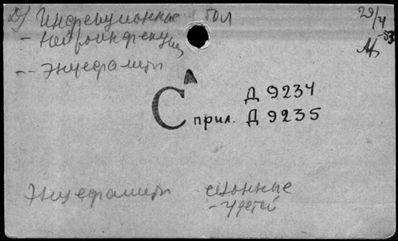 Д/ Инфекционные бол
29/4
- Нейроинфекции
-53
-- Энцефалиты
С
Д 9234
прил. Д 9235
Энцефалиты сезонные
- у детей